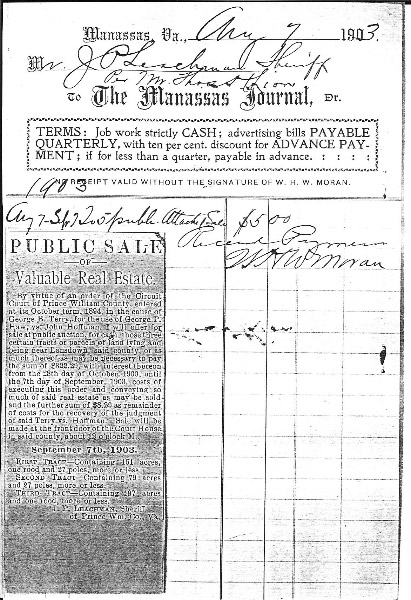 Manassas, Va., Aug 7 1903
Mr. J P Leachman Sheriff
Per
To The Manassas Journal, Dr.
TERMS: Job work strictly CASH; advertising bills PAYABLE
QUARTERLY, with ten per cent. discount for ADVANCE PAY-
MENT; if for less than a quarter, payable in advance. : : : :
NO RECEIPT VALID WITHOUT THE SIGNATURE OF W. H. W. MORAN.
1903
Aug 7 - Sep 7 To 5 publ. Attached Sale $5.00
Received Payment
W H W Moran
PUBLIC SALE
—OF—
Valuable Real Estate.
By virtue of an order of the Circuit
Court of Prince William County, entered
at its October term, 1894, in the cause of
George B. Terry, for the use of George T.
vs. John Hoffman, I will offer for
sale at public auction, for cash, those three
certain tracts or parcels of land lying and
being near Lansdown, said county, or as
much thereof as may be necessary to pay
the sum of with interest thereon
from the 28th day of October, until
the 7th day of September, 1903, costs of
executing this order and conveying so
much of said real estate as may be sold
and the further sum of as remainder
of costs for the recovery of the judgment
of said Terry vs. Hoffman. Sale will be
made at the front door of the Court House
in said county, about 12 o'clock M.
September 7th, 1903.
FIRST TRACT—Containing 161 acres,
one rood and 27 poles, more or less.
SECOND TRACT—Containing acres
and 27 poles, more or less.
THIRD TRACT—Containing acres
and one rood, more or less.
J. P. LEACHMAN, Sheriff
of Prince Wm. Co., Va.